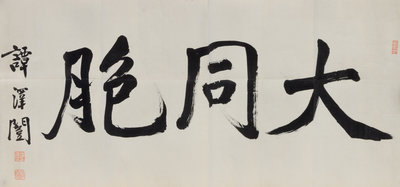 大同胞
譚澤闓